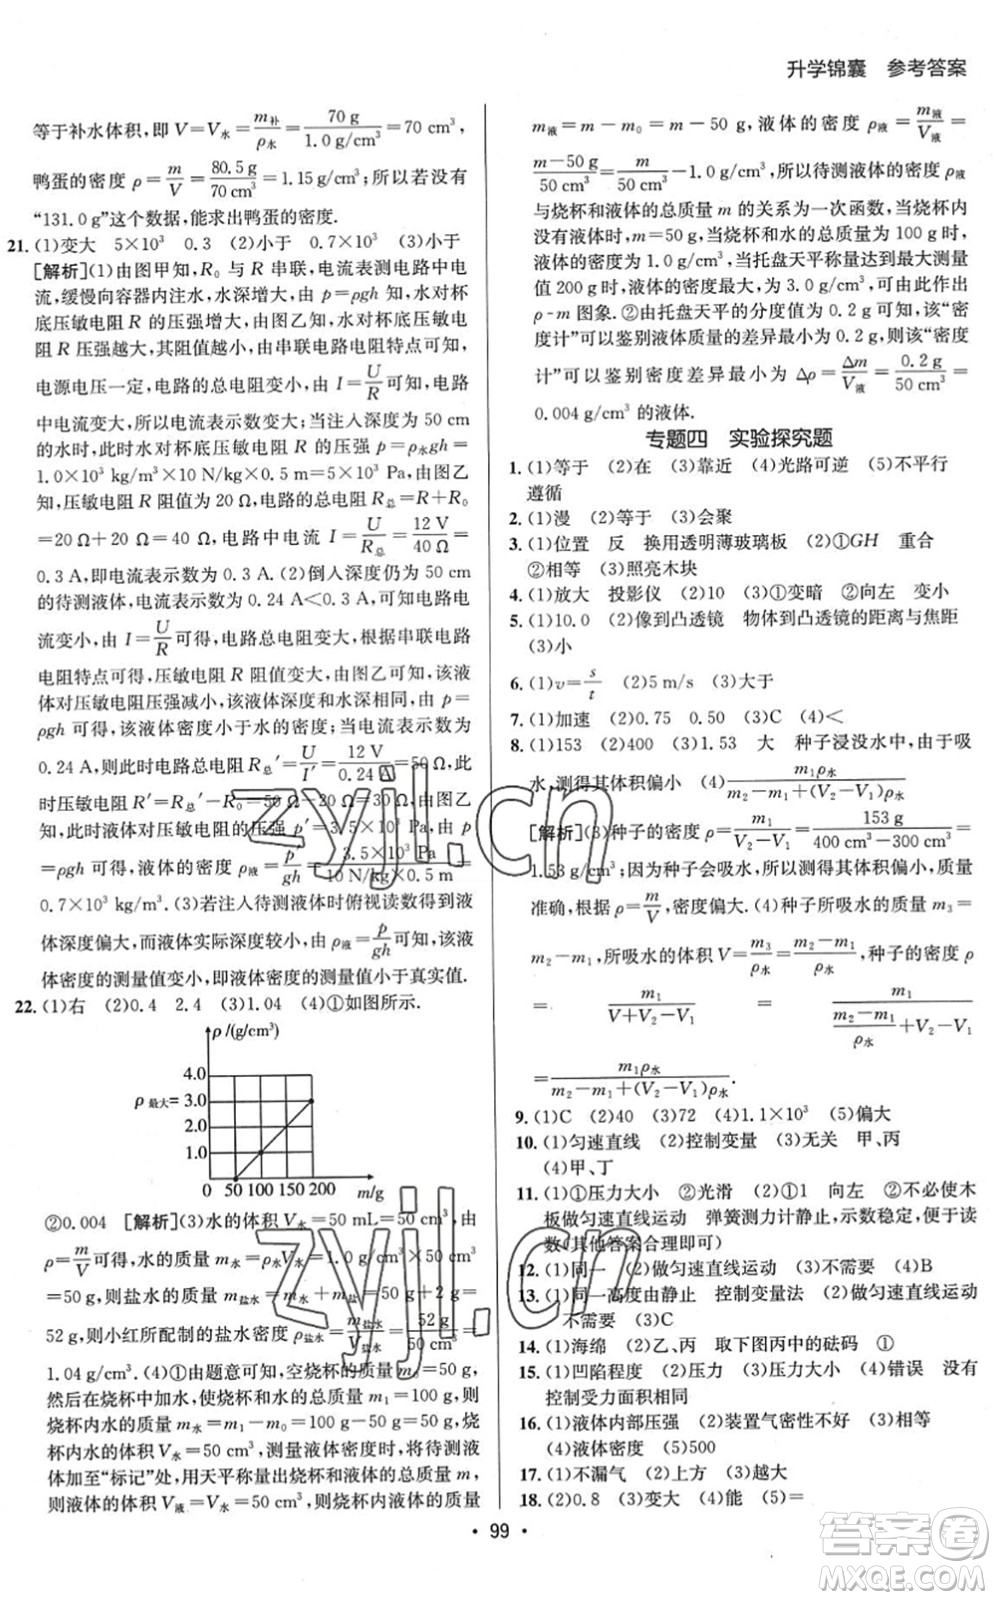 升学锦囊 参考答案
等于补水体积,即 V=V水=m补/ρ水=70 g/1.0 g/cm³=70 cm³,
鸭蛋的密度 ρ=m/V=80.5 g/70 cm³=1.15 g/cm³;所以若没有
“131.0 g”这个数据,能求出鸭蛋的密度.
21. (1)变大 5×10³ 0.3 (2)小于 0.7×10³ (3)小于
[解析](1)由图甲知,R₀ 与 R 串联,电流表测电路中电
流,缓慢向容器内注水,水深增大,由 p=ρgh 知,水对杯
底压敏电阻 R 的压强增大,由图乙知,水对杯底压敏电
阻 R 压强越大,其阻值越小,由串联电路电阻特点可知,
电源电压一定,电路的总电阻变小,由 I=U/R可知,电路
中电流变大,所以电流表示数变大;当注入深度为 50 cm
的水时,此时水对杯底压敏电阻 R 的压强 p=ρ水gh=
1.0×10³ kg/m³×10 N/kg×0.5 m=5×10³ Pa,由图乙
知,压敏电阻 R 阻值为 20 Ω,电路的总电阻 R总=R+R₀
=20 Ω+20 Ω=40 Ω,电路中电流 I=U/R总=12 V/40 Ω=
0.3 A,即电流表示数为 0.3 A;(2)倒入深度仍为 50 cm
的待测液体,电流表示数为 0.24 A<0.3 A,电流表示数
变小,由 I=U/R可得,电路总电阻变大,根据串联电路
电阻特点可得,压敏电阻 R 阻值变大,由图乙可得,该液
体对压敏电阻压强减小,该液体深度和水深相同,由 p=
ρgh 可得,该液体密度小于水的密度;当电流表示数为
0.24 A,则此时电路总电阻 R总′=U/I′=12 V/0.24 A=50 Ω,此
时压敏电阻 R′=R总′-R₀=50 Ω-20 Ω=30 Ω,由图乙
知,此时液体对压敏电阻的压强 p′=3.5×10³ Pa,由 p
=ρgh 知,该液体的密度 ρ=p′/gh=3.5×10³ Pa/10 N/kg×0.5 m=
0.7×10³ kg/m³.(3)若注入待测液体时俯视读数得到液
体深度偏大,而液体实际深度较小,由 ρ液=p/gh可知,该液
体密度的测量值变小,即液体密度的测量值小于真实值.
22. (1)右 (2)0.4 2.4 (3)1.04 (4)①如图所示.
ρ /(g/cm³)
4.0
ρ 最大=3.0
2.0
1.0
0 50 100 150 200 m/g
②0.004 [解析](3)水的体积 V水=50 mL=50 cm³,由
ρ=m/V可得,水的质量 m水=ρ水V水=1.0 g/cm³×50 cm³
=50 g,则盐水的质量 m盐水=m水+m盐=50 g+2 g=
52 g,则小红所配制的盐水密度 ρ盐水=m盐水/V水=52 g/50 cm³=
1.04 g/cm³.(4)①由题意可知,空烧杯的质量 m₀=50 g,
然后在烧杯中加水,使烧杯和水的总质量 m₁=100 g,则
烧杯内水的质量 m水=m₁-m₀=100 g-50 g=50 g,烧
杯内水的体积 V水=50 cm³,测量液体密度时,将待测液
体加至“标记”处,用天平称量出烧杯和液体的总质量 m,
则液体的体积 V液=V水=50 cm³,则烧杯内液体的质量
m液=m-m₀=m-50 g,液体的密度 ρ液=m液/V液=
m-50 g/50 cm³=m/50 cm³-1.0 g/cm³,所以待测液体的密度 ρ液
与烧杯和液体的总质量 m 的关系为一次函数,当烧杯内
没有液体时,m=50 g;当烧杯和水的总质量为 100 g 时,
水的密度为 1.0 g/cm³;当托盘天平称量烧杯测量最大
值 200 g 时,液体的密度最大,为 3.0 g/cm³,由此可作出
ρ-m 图象.②由托盘天平的分度值为 0.2 g 可知,该“密
度计”可以鉴别液体质量的差异最小为 0.2 g,则该“密度
计”可以鉴别密度差异最小为 Δρ=Δm/V液=0.2 g/50 cm³=
0.004 g/cm³ 的液体.
专题四 实验探究题
1. (1)等于 (2)在 (3)靠近 (4)光路可逆 (5)不平行
遵循
2. (1)漫 (2)等于 (3)会聚
3. (1)位置 反 换用透明薄玻璃板 (2)①GH 重合
②相等 (3)照亮木块
4. (1)放大 投影仪 (2)10 (3)①变暗 ②向左 变小
5. (1)10.0 (2)像到凸透镜 物体到凸透镜的距离与焦距
(3)小
6. (1)v=s/t (2)5 m/s (3)大于
7. (1)加速 (2)0.75 0.50 (3)C (4)<
8. (1)153 (2)400 (3)1.53 大 种子浸没水中,由于吸
水,测得其体积偏小 (4)m₁ρ水/m₂-m₁+(V₂-V₁)ρ水
[解析](3)种子的密度 ρ=m₁/V₂-V₁=153 g/400 cm³-300 cm³=
1.53 g/cm³;因为种子会吸水,所以测得体积偏小,质量
准确,根据 ρ=m/V,求得密度偏大.(4)种子所吸水的质量 m₃=
m₂-m₁,所吸水的体积 V=m₃/ρ水=m₂-m₁/ρ水,种子的密度 ρ
= m₁/V+V₂-V₁ = m₁/m₂-m₁/ρ水+V₂-V₁
=m₁ρ水/m₂-m₁+(V₂-V₁)ρ水.
9. (1)C (2)40 (3)72 (4)1.1×10³ (5)偏大
10. (1)匀速直线 (2)控制变量 (3)无关 甲、丙
(4)甲、丁
11. (1)①压力大小 ②光滑 (2)①1 向左 ②不必使木
板做匀速直线运动 弹簧测力计静止,示数稳定,便于读
数(其他答案合理即可)
12. (1)同一 (2)做匀速直线运动 (3)不需要 (4)B
13. (1)同一高度由静止 控制变量法 (2)做匀速直线运动
不需要
14. (1)海绵 (2)乙、丙 取下图丙中的砝码 ①
15. (1)凹陷程度 (2)压力 (3)压力大小 (4)错误 没有
控制受力面积相同
16. (1)液体内部压强 (2)装置气密性不好 (3)相等
(4)液体密度 (5)500
17. (1)不漏气 (2)上方 (3)越大
18. (2)0.8 (3)变大 (4)能 (5)=
• 99 •
zyjl.cn
zyjl.cn
答案圈
MXQE.COM